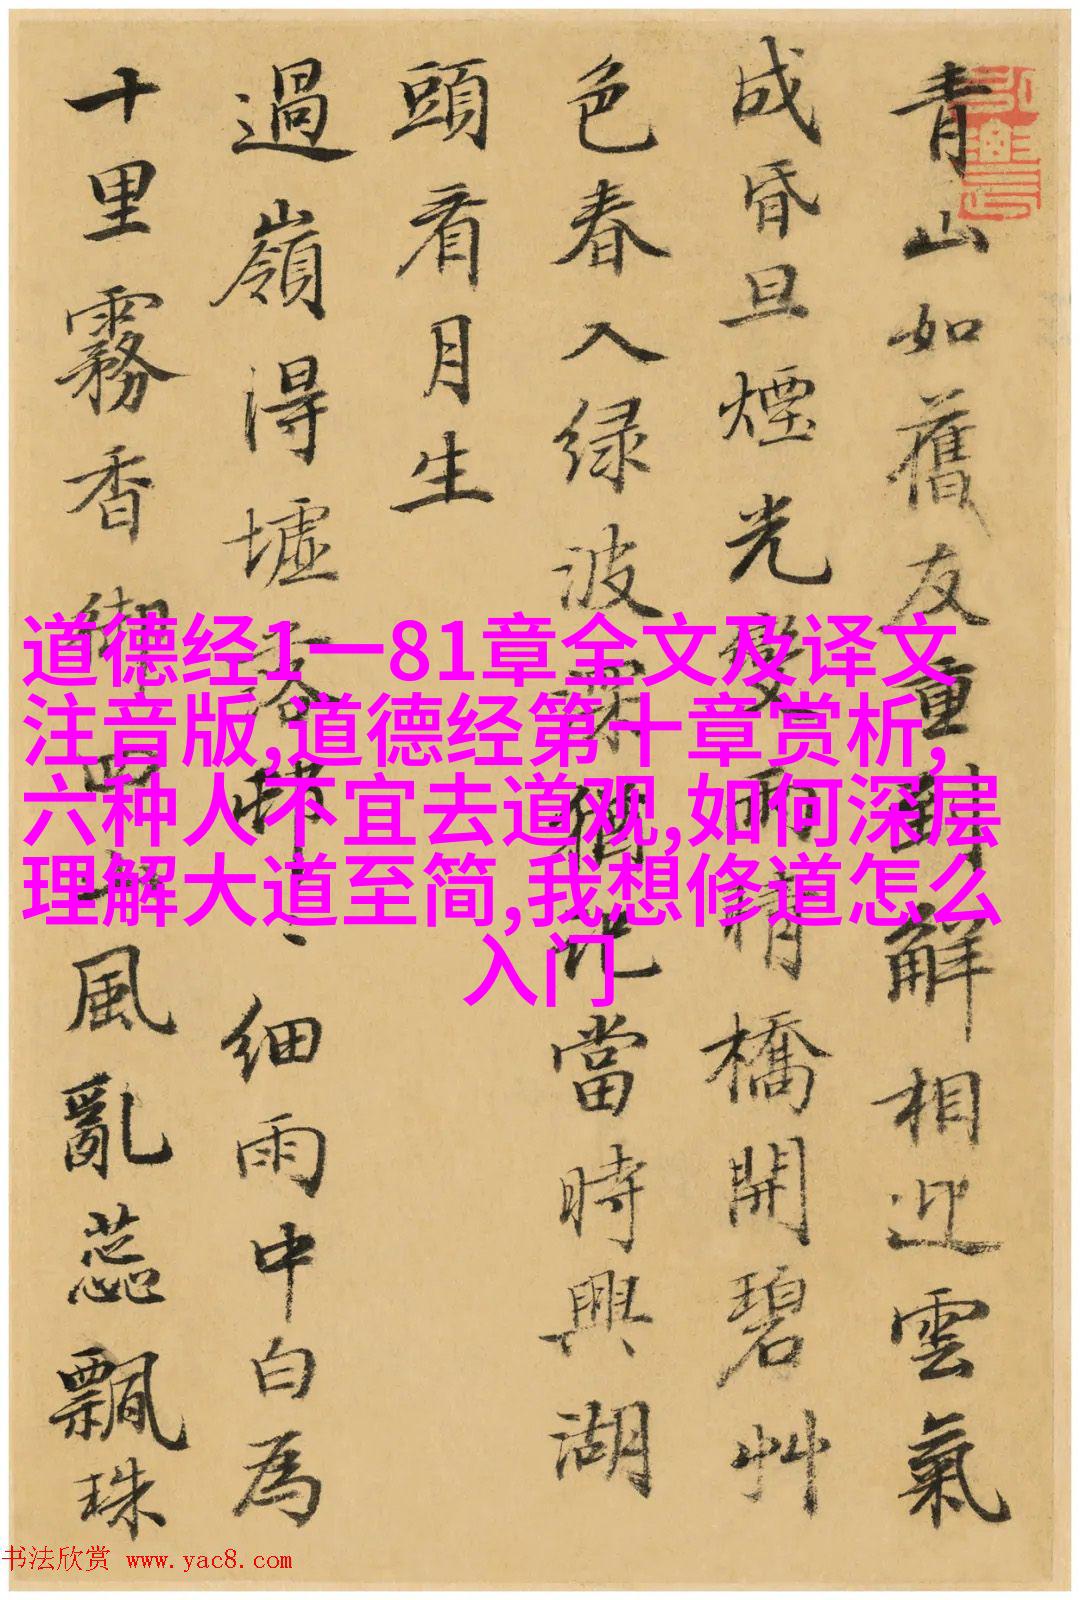 青山如舊友重到解相迎雲氣
成昏旦煙光變雨晴橋開碧艸
色春入緑波深猶當時興湖
頭看月生
過嶺得墟落細雨中白為
十里霧香風亂蕊飄珠
道德经1一81章全文及译文
注音版,道德经第十章赏析,
六种人不宜去道观,如何深层
理解大道至简,我想修道怎么
入门
书法欣赏 www.yac8.com